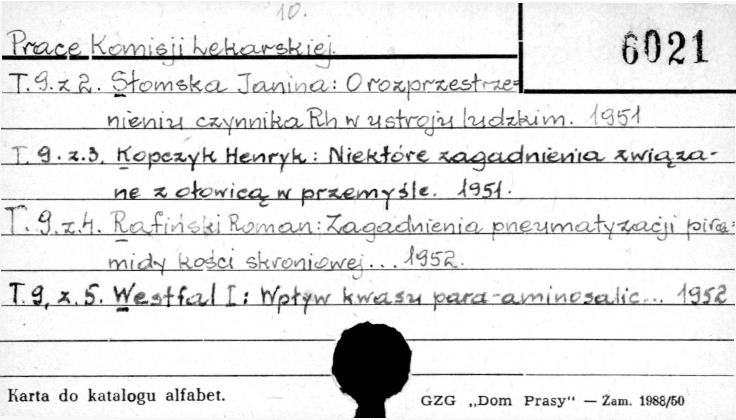 10.
6021
Prace Komisji Lekarskiej.
T. 9. z 2. Słomska Janina: O rozprzestrze=
nieniu czynnika Rh w ustroju ludzkim. 1951
T. 9. z. 3. Kopczyk Henryk: Niektóre zagadnienia związa-
ne z ołowicą w przemyśle. 1951.
T. 9. z. 4. Rafiński Roman: Zagadnienia pneumatyzacji pira=
midy kości skroniowej... 1952.
T. 9, z. 5. Westfal I: Wpływ kwasu para-aminosalic... 1952
Karta do katalogu alfabet.
GZG „Dom Prasy“ — Zam. 1988/50